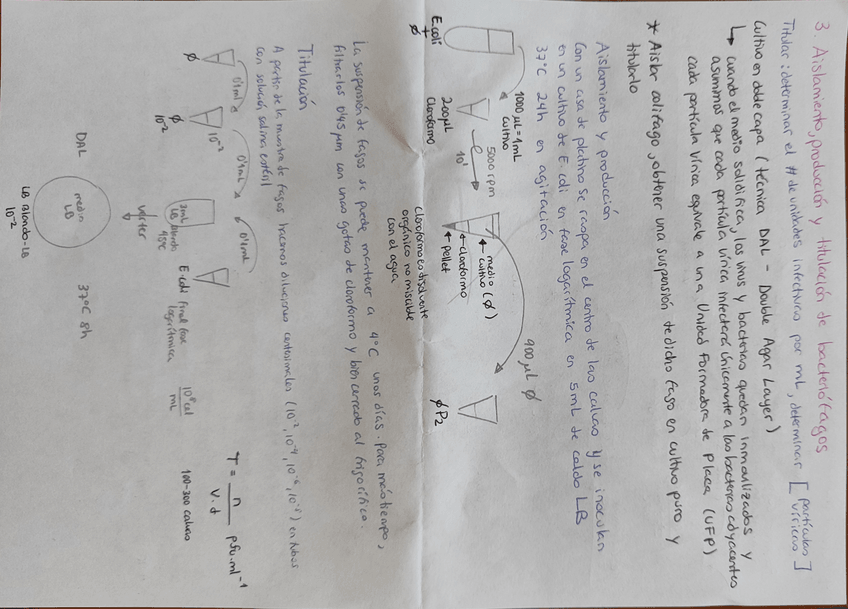 3. Aislamiento, producción y titulación de bacteriófagos
Titular: determinar el # de unidades infectivas por mL, determinar [partículas víricas]
Cultivo en doble capa (técnica DAL - Double Agar Layer)
↳ cuando el medio solidifica, los virus y bacterias quedan inmovilizados y
asumimos que cada partícula vírica infectará únicamente a las bacterias adyacentes
cada partícula vírica equivale a una Unidad Formadora de Placa (UFP)
* Aislar colifago, obtener una suspensión de dicho fago en cultivo puro y
titularlo
Aislamiento y producción
Con un asa de platino se raspa en el centro de las calvas y se inoculan
en un cultivo de E. coli en fase logarítmica en 5mL de caldo LB
37°C 24h en agitación
E.coli
+
ϕ
1000 µL = 1mL
cultivo
200µL
Cloroformo
5000 rpm
10'
medio (ϕ)
cultivo
cloroformo
pellet
Cloroformo es disolvente
orgánico no miscible
con el agua
900 µL ϕ
ϕP2
La suspensión de fagos se puede mantener a 4°C unos días. Para más tiempo,
filtrarlos 0'45 µm con unas gotas de cloroformo y bien cerrado al frigorífico.
Titulación
A partir de la muestra de fagos hacemos diluciones centesimales (10⁻², 10⁻⁴, 10⁻⁶, 10⁻⁸) en tubos
con solución salina estéril
0'1mL
0'1mL
0'1mL
ϕ
ϕ
10⁻²
10⁻²
3mL
LB blando
45°C
verter
E-coli final fase
logarítmica
10⁸ cel
mL
T = n / V.d pfu.ml⁻¹
100-300 calvas
DAL
medio
LB
37°C 8h
LB Blando-LB
10⁻²